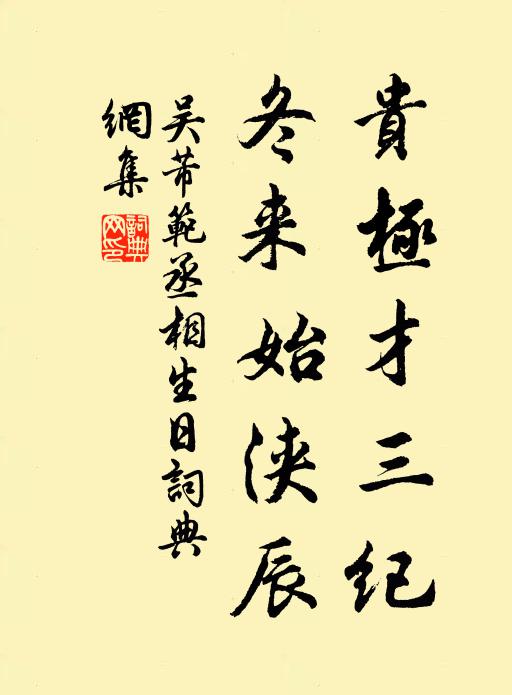 貴極才三纪
冬来始浹辰
吴芾範丞相生日詞典
網集
詞典網印